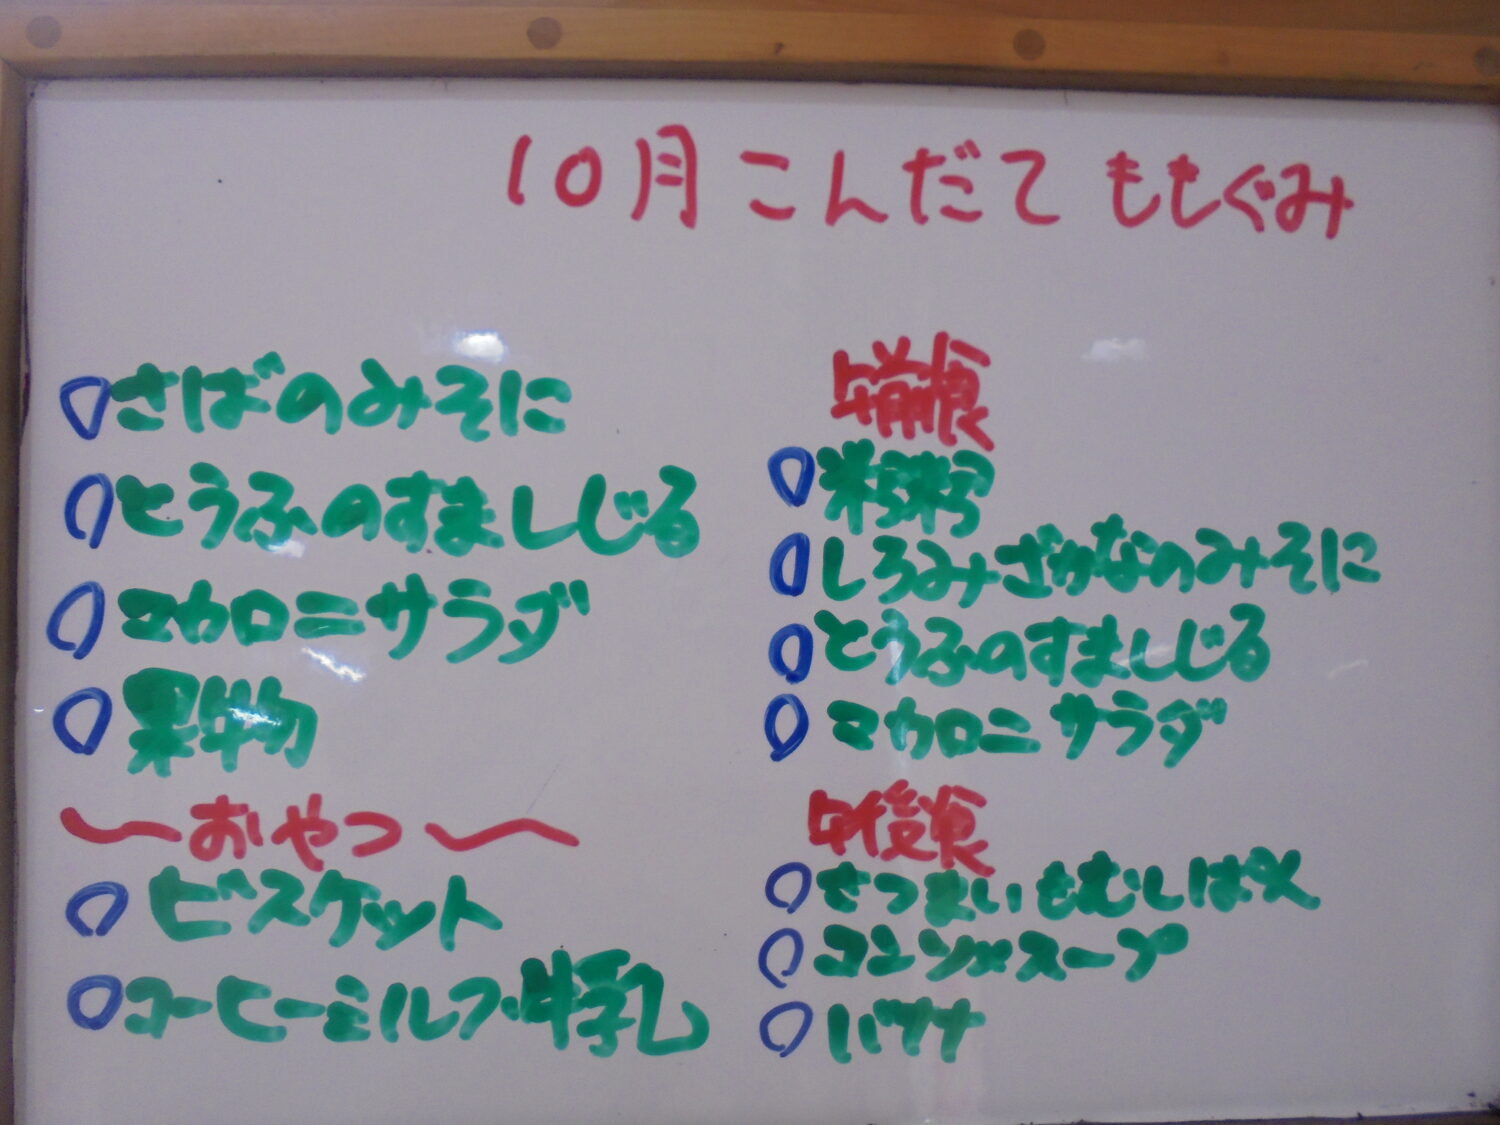 10月 こんだて ももぐみ
さばのみそに
とうふのすましじる
マカロニサラダ
果物
〜おやつ〜
ビスケット
コーヒーミルク・牛乳
午前食
粥
しろみざかなのみそに
とうふのすましじる
マカロニサラダ
午後食
さつまいもむしぱん
コンソメスープ
バナナ